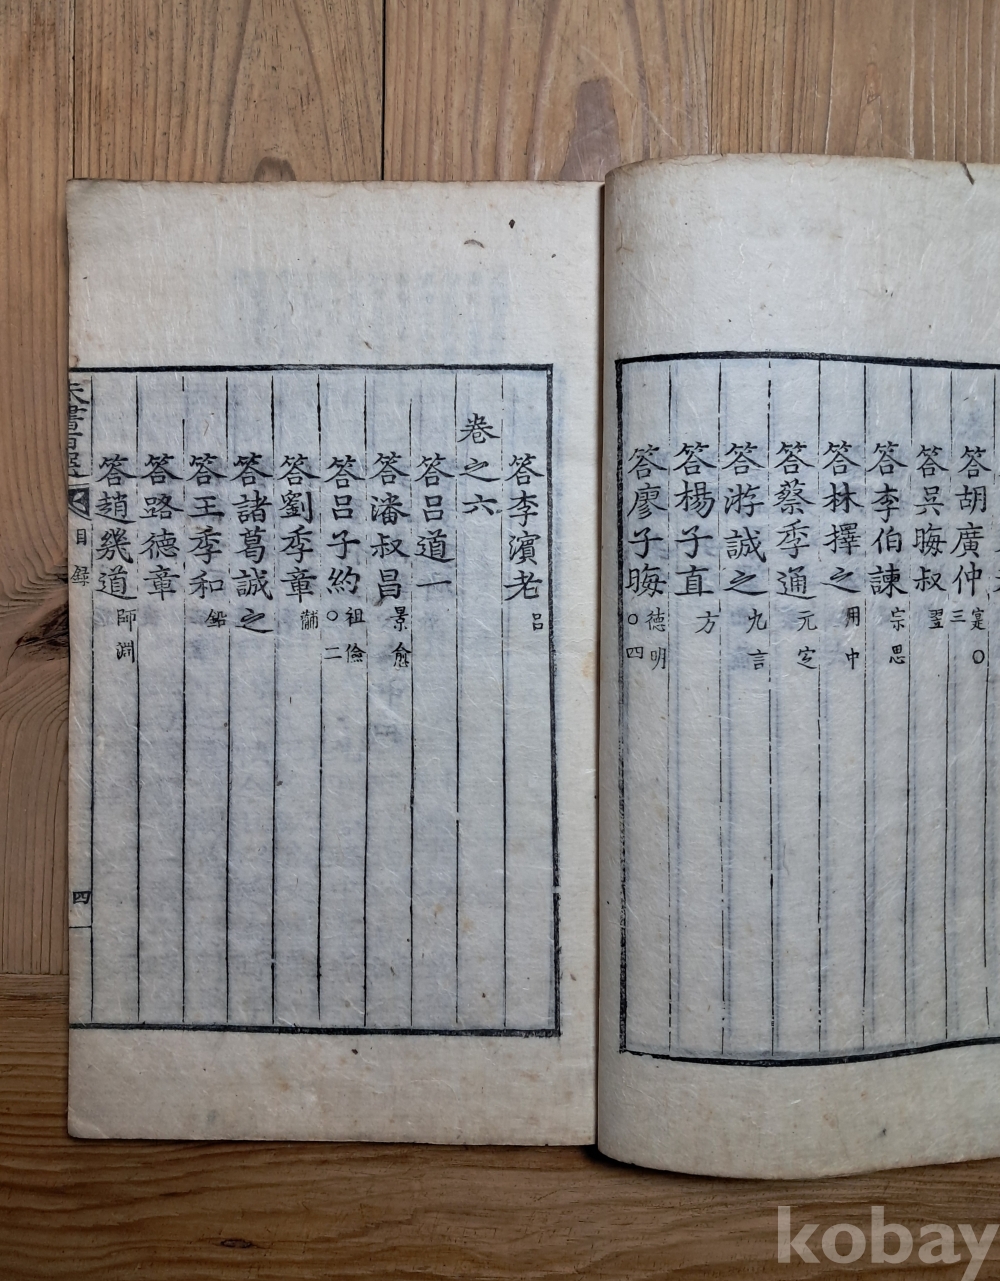 答胡廣仲寔〇三
答吳晦叔翌
答李伯諫宗思
答林擇之用中
答蔡季通元定
答游誠之九言
答楊子直方
答廖子晦德明〇四
答李濱老呂
卷之六
答呂道一
答潘叔昌景愈
答呂子約祖儉〇二
答劉季章黼
答諸葛誠之
答王季和鉛
答路德章
答趙幾道師淵
朱書百選
目錄
四
kobay